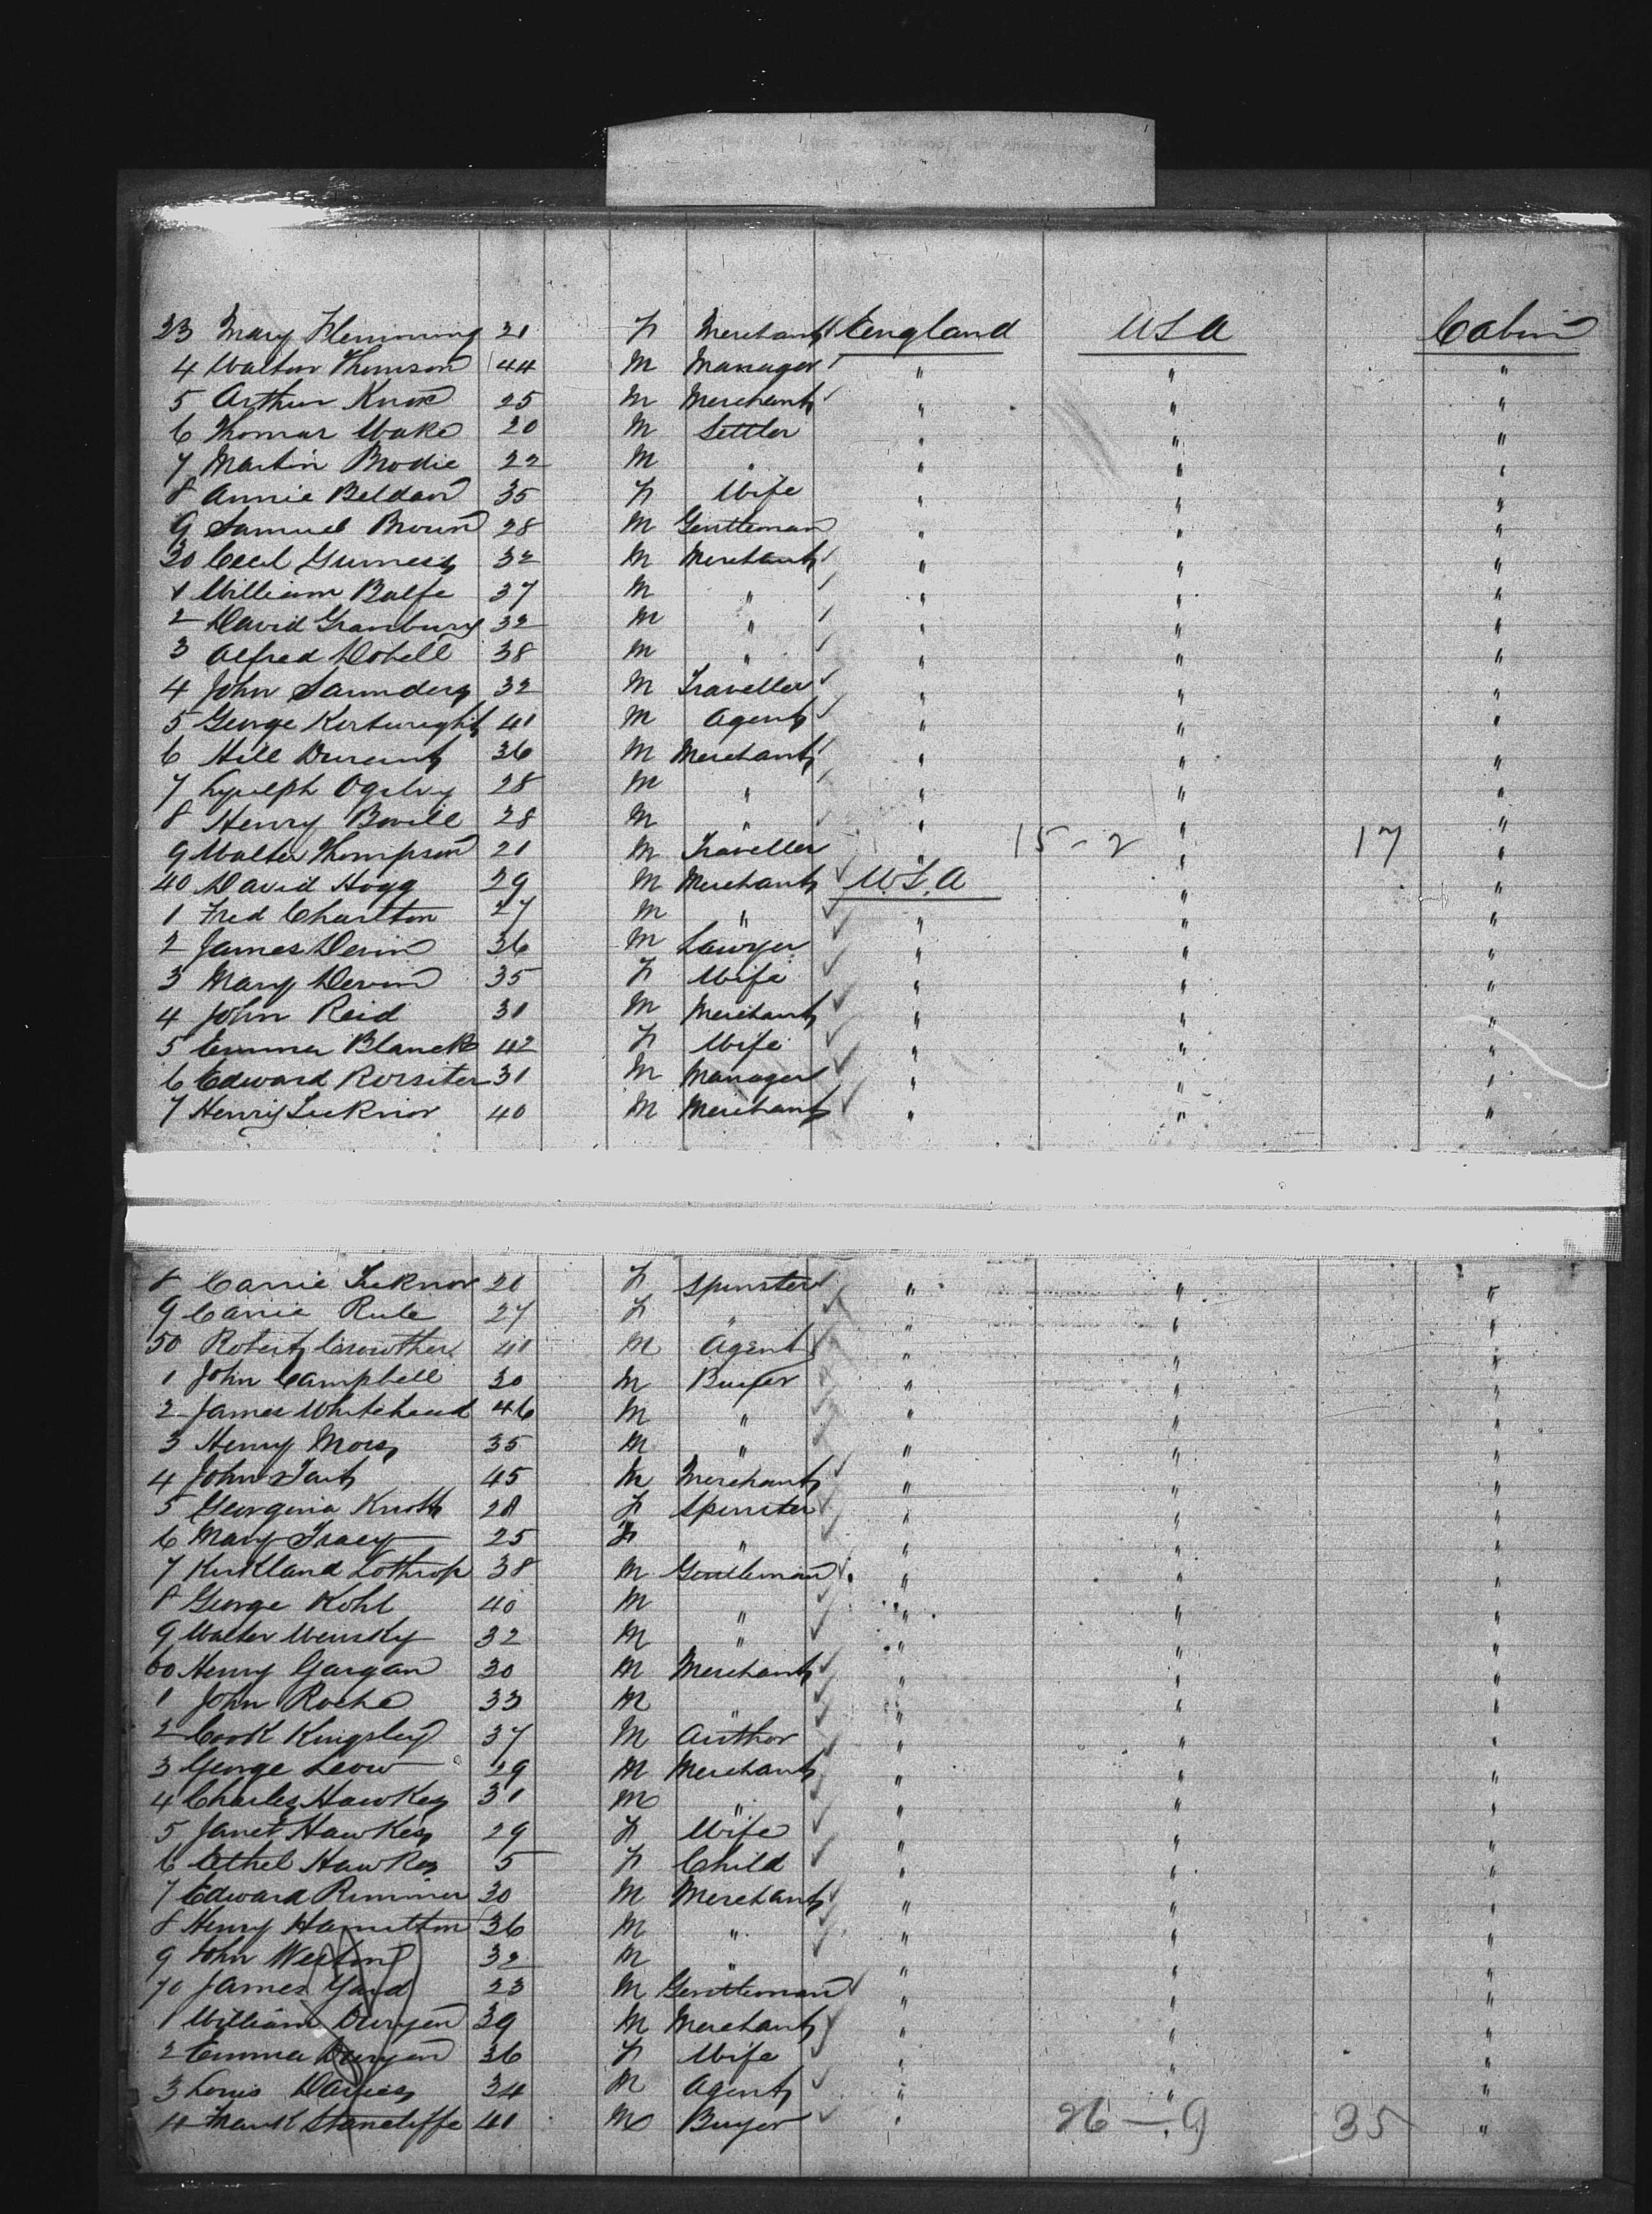 23 Mary Flemming 21 F Merchant England USA Cabin
4 Walton Thomson 44 M Manager " " "
5 Arthur Knox 25 M Merchant " " "
6 Thomas Wake 20 M Settler " " "
7 Martin Brodie 22 M " " " "
8 Annie Beldan 35 F Wife " " "
9 Samuel Brown 28 M Gentleman " " "
30 Cecil Guiness 32 M Merchant " " "
1 William Balfe 37 M " " " "
2 David Granbury 32 M " " " "
3 Alfred Dobell 38 M " " " "
4 John Saunders 32 M Traveller " " "
5 George Kortwright 41 M Agent " " "
6 Hill 36 M Merchant " " "
7 Lyulph Ogilvy 28 M " " " "
8 Henry Bovill 28 M " " " "
9 Walter Thompson 21 M Traveller " 15-2 " 17 "
40 David Hogg 29 M Merchant U.S.A " "
1 Fred Charlton 27 M " " " "
2 James Devin 36 M Lawyer " " "
3 Mary Devin 35 F Wife " " "
4 John Reid 31 M Merchant " " "
5 Emma Blanck 42 F Wife " " "
6 Edward Rossiter 31 M Manager " " "
7 Henry Ticknor 40 M Merchant " " "
8 Carrie Ticknor 20 F Spinster " " "
9 Carrie Rule 27 F " " " "
50 Robert Crowther 41 M Agent " " "
1 John Campbell 30 M Buyer " " "
2 James Whitehead 46 M " " " "
3 Henry Moss 35 M " " " "
4 John Tait 45 M Merchant " " "
5 Georgina Knott F Spinster " " "
6 Mary Tracy 25 F " " " "
7 Kirkland Lothrop 38 M Gentleman " " "
8 George Kohl 40 M " " " "
9 Walter Wensky 32 M " " " "
60 Henry Gargan 30 M Merchant " " "
1 John Roche 33 M " " " "
2 Cook Kingsley 37 M Author " " "
3 George Leow 29 M Merchant " " "
4 Charles Hawkes 31 M " " " "
5 Janet Hawkes 29 F Wife " " "
6 Ethel Hawkes 5 F Child " " "
7 Edward Rimmer 30 M Merchant " " "
8 Henry Hamilton 36 M " " " "
9 John Weston 32 M " " " "
70 James Yard 23 M Gentleman " " "
1 William Duryen 39 M Merchant " " "
2 Emma Duryen 36 F Wife " " "
3 Louis Davies 34 M Agent " " "
4 Frank Stancliffe 41 M Buyer " 26-9 35 "